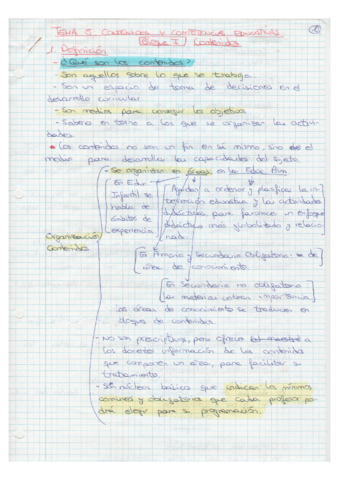 TEMA 5. CONTENIDOS Y COMPETENCIAS EDUCATIVAS
(Bloque I) Contenidos
1. Definición
- ¿Qué son los contenidos?
- Son aquellos sobre lo que se trabaja
- Son un espacio de toma de decisiones en el
desarrollo curricular
- Son medios para conseguir los objetivos
- Saberes en torno a los que se organizan las activi-
dades.
• Los contenidos no son un fin en sí mismo, sino el
medio para desarrollar las capacidades del sujeto
Organización
Contenidos
- Se organizan en áreas en la Educ.
En Educ.
Infantil se
habla de
ámbitos de
experiencia
Ayudan a ordenar y planificar la in-
tervención educativa y las actividades
didácticas para favorecer un enfoque
didáctico más globalizado y relacio-
nado.
En Primaria y Secundaria Obligatoria se de
área de conocimiento.
En Secundaria no obligatoria
las materias cobran importancia
Las áreas de conocimiento se traducen en
bloques de contenidos.
- No son prescriptivos, pero ofrecen
a los docentes información de los contenidos
que componen un área, para facilitar su
tratamiento.
- Son núcleos básicos que indican los mínimos
comunes y obligatorios que cada profesor po-
drá elegir para su programación.